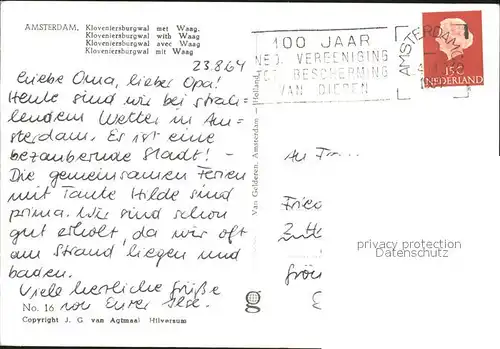 AMSTERDAM, Kloveniersburgwal met Waag.
Kloveniersburgwal with Waag
Kloveniersburgwal avec Waag
Kloveniersburgwal mit Waag
23.8.64
Liebe Oma, lieber Opa!
Heute sind wir bei strah-
lendem Wetter in Am-
sterdam. Es ist eine
bezaubernde Stadt! -
Die gemeinsamen Ferien
mit Tante Hilde sind
prima. Wir sind schon
gut erholt, da wir oft
am Strand liegen und
baden.
Viele herzliche Grüße
von Eurer Ilse.
No. 16
Copyright J. G van Agtmaal Hilversum
Van Gelderen, Amsterdam - Holland
100 JAAR
NED. VEREENIGING
TOT BESCHERMING
VAN DIEREN
AMSTERDAM
15c
NEDERLAND
An
privacy protection
Datenschutz